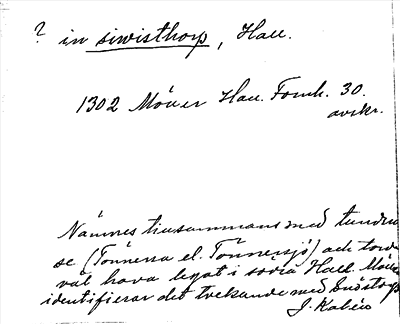 ? in siwisthorp, Hall.
1302 Möller Hall. Fornh. 30.
avskr.
Nämnes tillsammans med tundru
se (Tönnersa el. Tönnersjö) och torde
väl hava legat i södra Hall. Möller
identifierar det tvekande med
J. Kalén